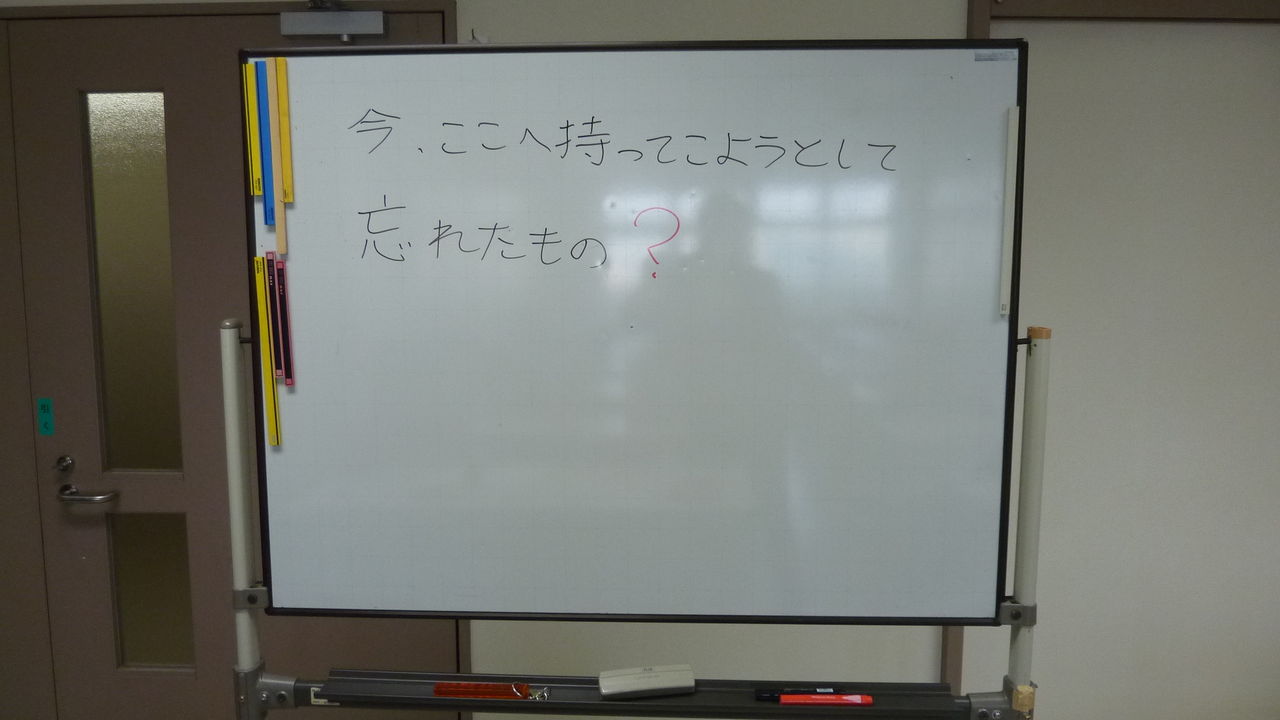 今、ここへ持ってこようとして
忘れたもの?